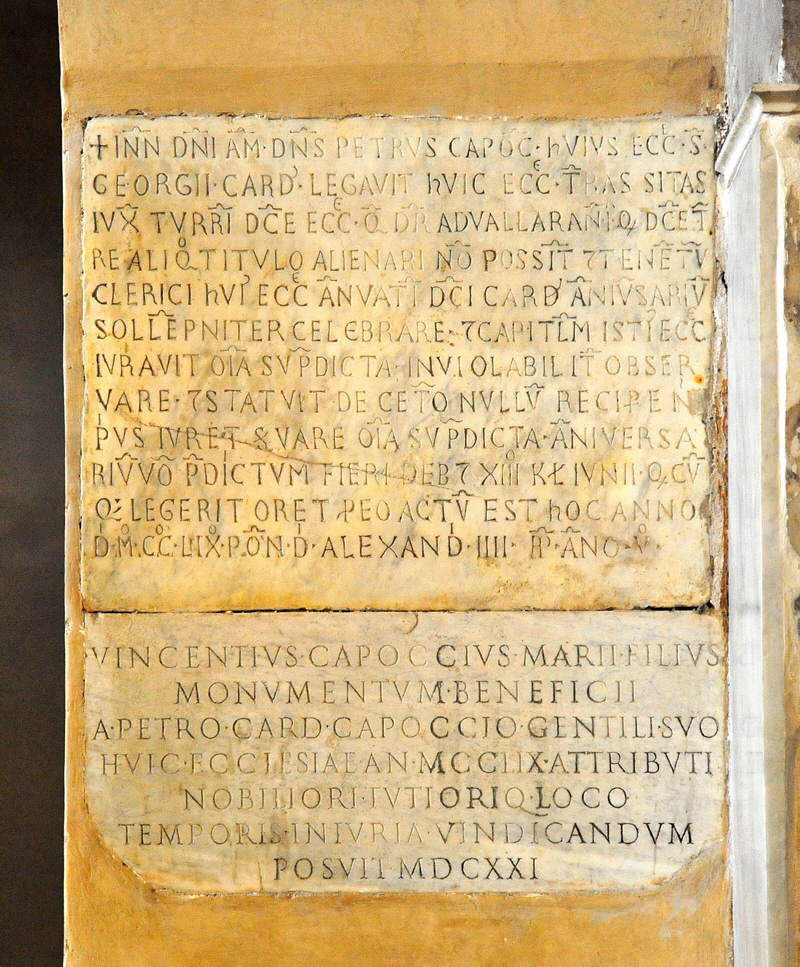 +INN DNI AM·DNS PETRVS CAPOC·hVIVS ECC·S·
GEORGII·CARD·LEGAVIT hVIC ECC·TRAS SITAS
IVX TVRRI DCE ECC·Q DR ADVALLARANI·Q DCET
REALIQ TITVLO ALIENARI NO POSSIT 7TENETV
CLERICI hVI ECC ANVATI DCI CARD ANIVSARIV
SOLLEPNITER CELEBRARE·7CAPITLM ISTI ECC
IVRAVIT OIA SVPDICTA·INVIOLABILIT OBSER
VARE·7STATVIT DE CETO NVLLV RECIPE N
PVS IVRET &VARE OIA SVPDICTA·ANIVERSA
RIVVO PDICTVM FIERI DEB7 XIIII KL IVNII·Q CV
Q LEGERIT ORET PEO ACTV EST hOC ANNO
D·M·CC·LIX·PON·D·ALEXAND·IIII·PP·ANO·V·
VINCENTIVS·CAPOCCIVS·MARII·FILIVS
MONVMENTVM·BENEFICII
A·PETRO·CARD·CAPOCCIO·GENTILI·SVO
HVIC·ECCLESIAE AN·MCCLIX·ATTRIBVTI
NOBILIORI·TVTIORIQ·LOCO
TEMPORIS·INIVRIA·VINDICANDVM
POSVIT MDCXXI